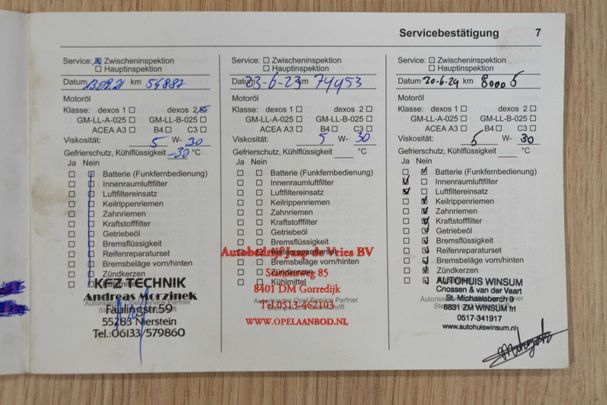 Servicebestätigung 7
Service: Zwischeninspektion
Hauptinspektion
Datum km 54887
Motoröl
Klasse: dexos 1 dexos 2
GM-LL-A-025 GM-LL-B-025
ACEA A3 B4 C3
Viskosität: 5 W- 30
Gefrierschutz, Kühlflüssigkeit -30 °C
Ja Nein
Batterie (Funkfernbedienung)
Innenraumluftfilter
Luftfiltereinsatz
Keilrippenriemen
Zahnriemen
Kraftstofffilter
Getriebeöl
Bremsflüssigkeit
Reifenreparaturset
Bremsbeläge vorn/hinten
Zündkerzen
KFZ TECHNIK
Andreas Morzinek
Faulingstr.59
55283 Nierstein
Tel.:06133/579860
Service: Zwischeninspektion
Hauptinspektion
Datum 23-6-23 km 74953
Motoröl
Klasse: dexos 1 dexos 2
GM-LL-A-025 GM-LL-B-025
ACEA A3 B4 C3
Viskosität: 5 W- 30
Gefrierschutz, Kühlflüssigkeit °C
Ja Nein
Batterie (Funkfernbedienung)
Innenraumluftfilter
Luftfiltereinsatz
Keilrippenriemen
Zahnriemen
Kraftstofffilter
Getriebeöl
Bremsflüssigkeit
Autobedrijf Jaap de Vries BV
Reifenreparaturset
Bremsbeläge vorn/hinten
85
Zündkerzen
Kühlmittel
8401 DM Gorredijk
Tel.0513-462103
WWW.OPELAANBOD.NL
Service: Zwischeninspektion
Hauptinspektion
Datum 20-6-24 km 80005
Motoröl
Klasse: dexos 1 dexos 2
GM-LL-A-025 GM-LL-B-025
ACEA A3 B4 C3
Viskosität: 5 W- 30
Gefrierschutz, Kühlflüssigkeit °C
Ja Nein
Batterie (Funkfernbedienung)
Innenraumluftfilter
Luftfiltereinsatz
Keilrippenriemen
Zahnriemen
Kraftstofffilter
Getriebeöl
Bremsflüssigkeit
Reifenreparaturset
Bremsbeläge vorn/hinten
Zündkerzen
AUTOHUIS WINSUM
Cnossen & van der Vaart
St. Michaelsberch 9
8831 ZM WINSUM frl
0517-341917
www.autohuiswinsum.nl